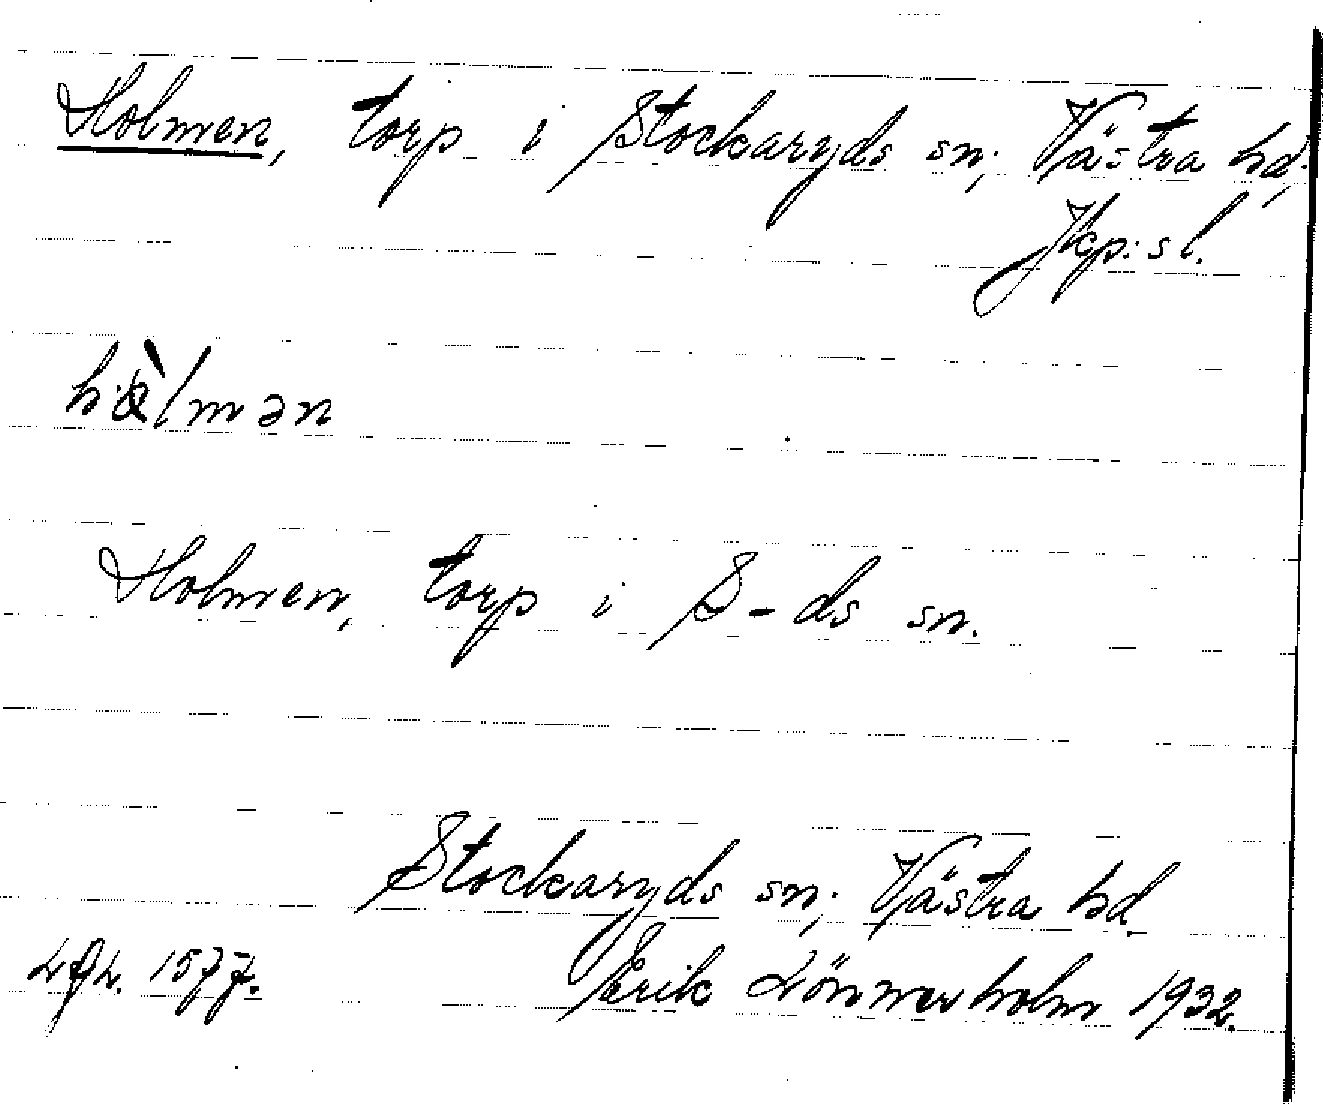 Holmen, torp i Stockaryds sn; Västra hd,
Jkp:s l.
hòlmən
Holmen, torp i S-ds sn.
Stockaryds sn; Västra hd.
1577. Erik Lönnerholm 1932.